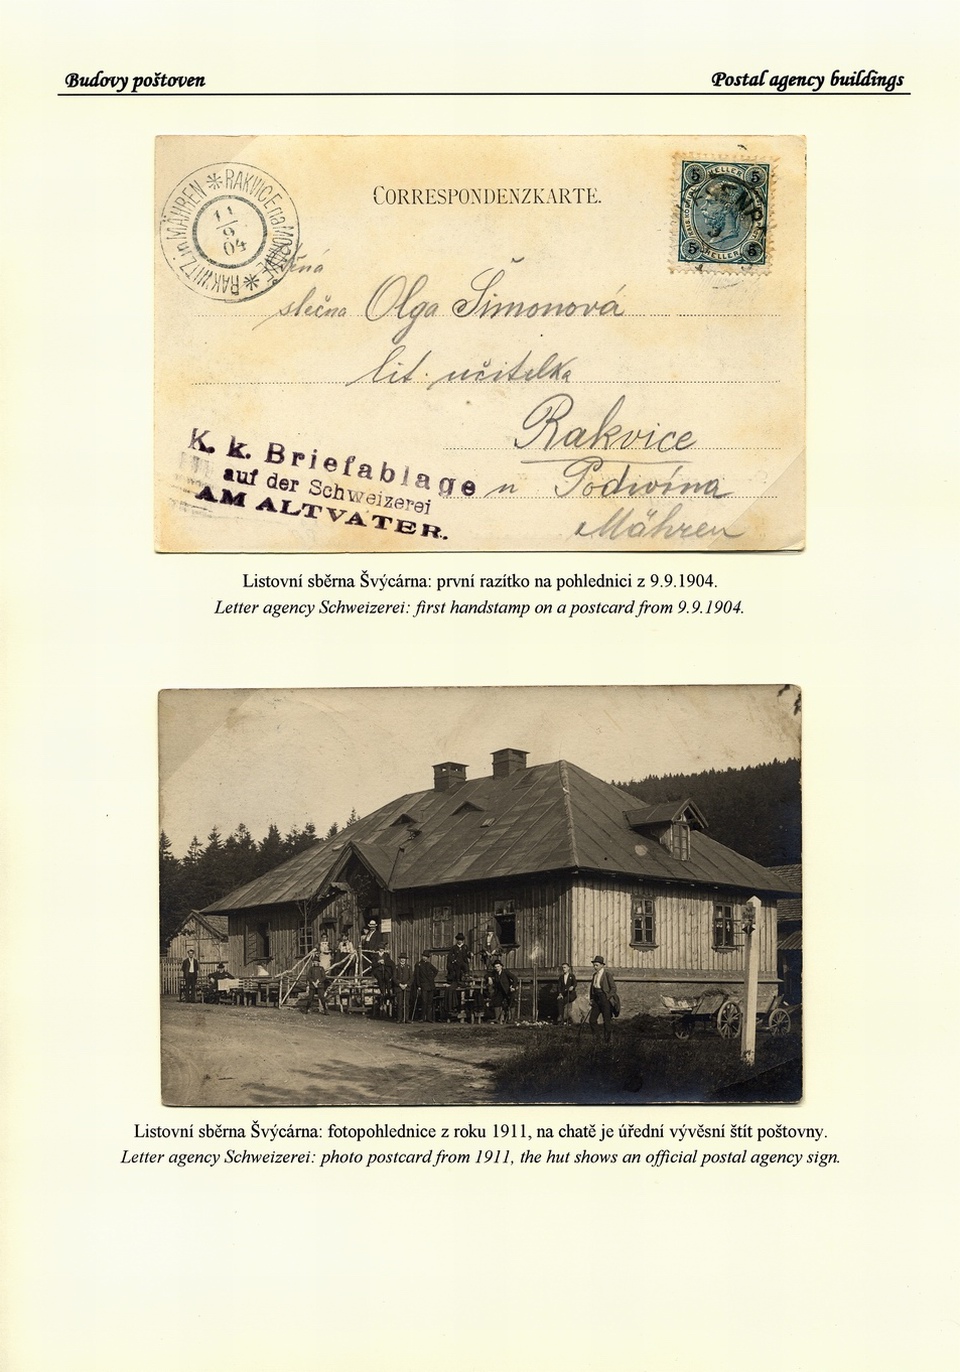 Budovy poštoven
Postal agency buildings
RAKVICE na MORAVĚ
RAKWITZ in MÄHREN
11/9
04
CORRESPONDENZKARTE.
5 HELLER 5
5 HELLER 5
slečna Olga Šimonová
lit. učitelka
Rakvice
u Podivína
Mähren
K. k. Briefablage
auf der Schweizerei
AM ALTVATER.
Listovní sběrna Švýcárna: první razítko na pohlednici z 9.9.1904.
Letter agency Schweizerei: first handstamp on a postcard from 9.9.1904.
Listovní sběrna Švýcárna: fotopohlednice z roku 1911, na chatě je úřední vývěsní štít poštovny.
Letter agency Schweizerei: photo postcard from 1911, the hut shows an official postal agency sign.